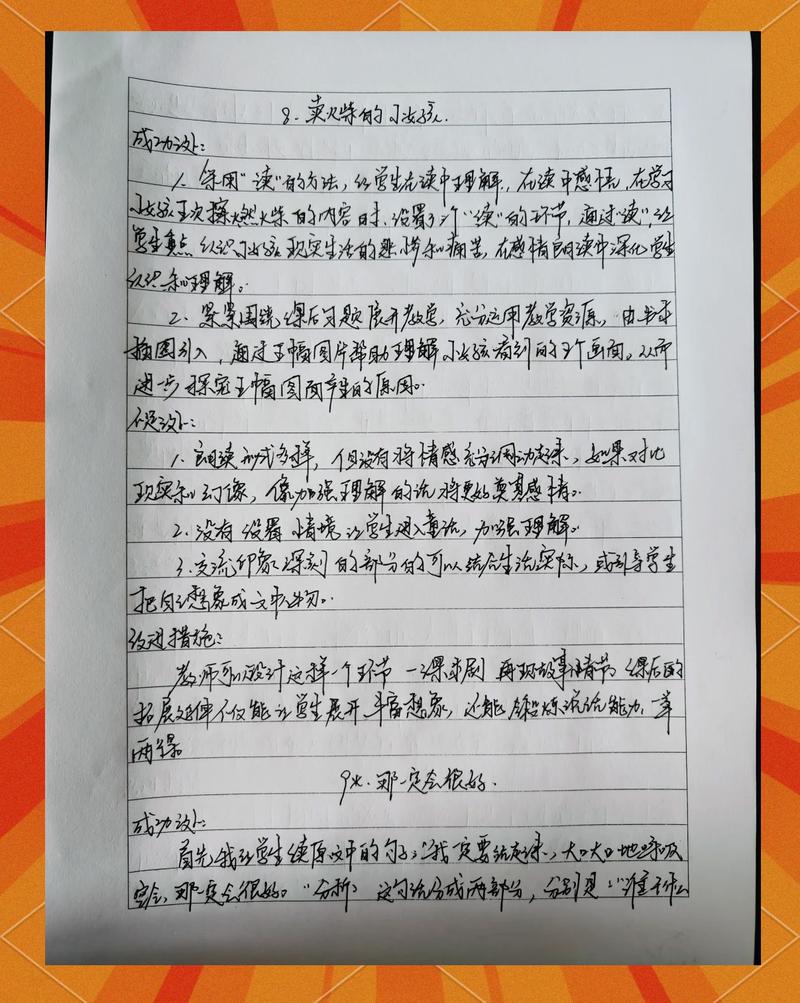 8. 卖火柴的小女孩.
成功之处:
1. 采用"读"的方法,让学生在读中理解,在读中感悟,在学习
小女孩五次擦燃火柴的内容时,设置了个"读"的环节,通过"读",让
学生重点认识小女孩现实生活的悲惨和痛苦,在感情朗读中深化学生
认识和理解。
2. 紧紧围绕课后习题展开教学,充分运用教学资源,由
插图引入,通过五幅图片帮助理解小女孩看到的五个画面。从而
进步探究五幅图画产生的原因。
不足之处:
1. 朗读形式多样,但没有将情感充分调动起来,如果对比
现实和幻像,像加强理解的话将更好奠基感情。
2. 没有设置情境让学生进入童话,加强理解。
3. 交流印象深刻的部分的可以结合生活实际,或引导学生
把自己想象成文中人物。
改进措施:
教师可以设计这样一个环节——课本剧 再现故事情节,课后的
拓展延伸不仅能让学生展开丰富想象,还能锻炼说话能力,一举
两得。
9*. 那一定会很好.
成功之处:
首先我让学生读原文中的句子:"我一定要站起来,大口大口地呼吸
空气,那一定会很好。"分析,这句话分成两部分,分别是"谁干什么